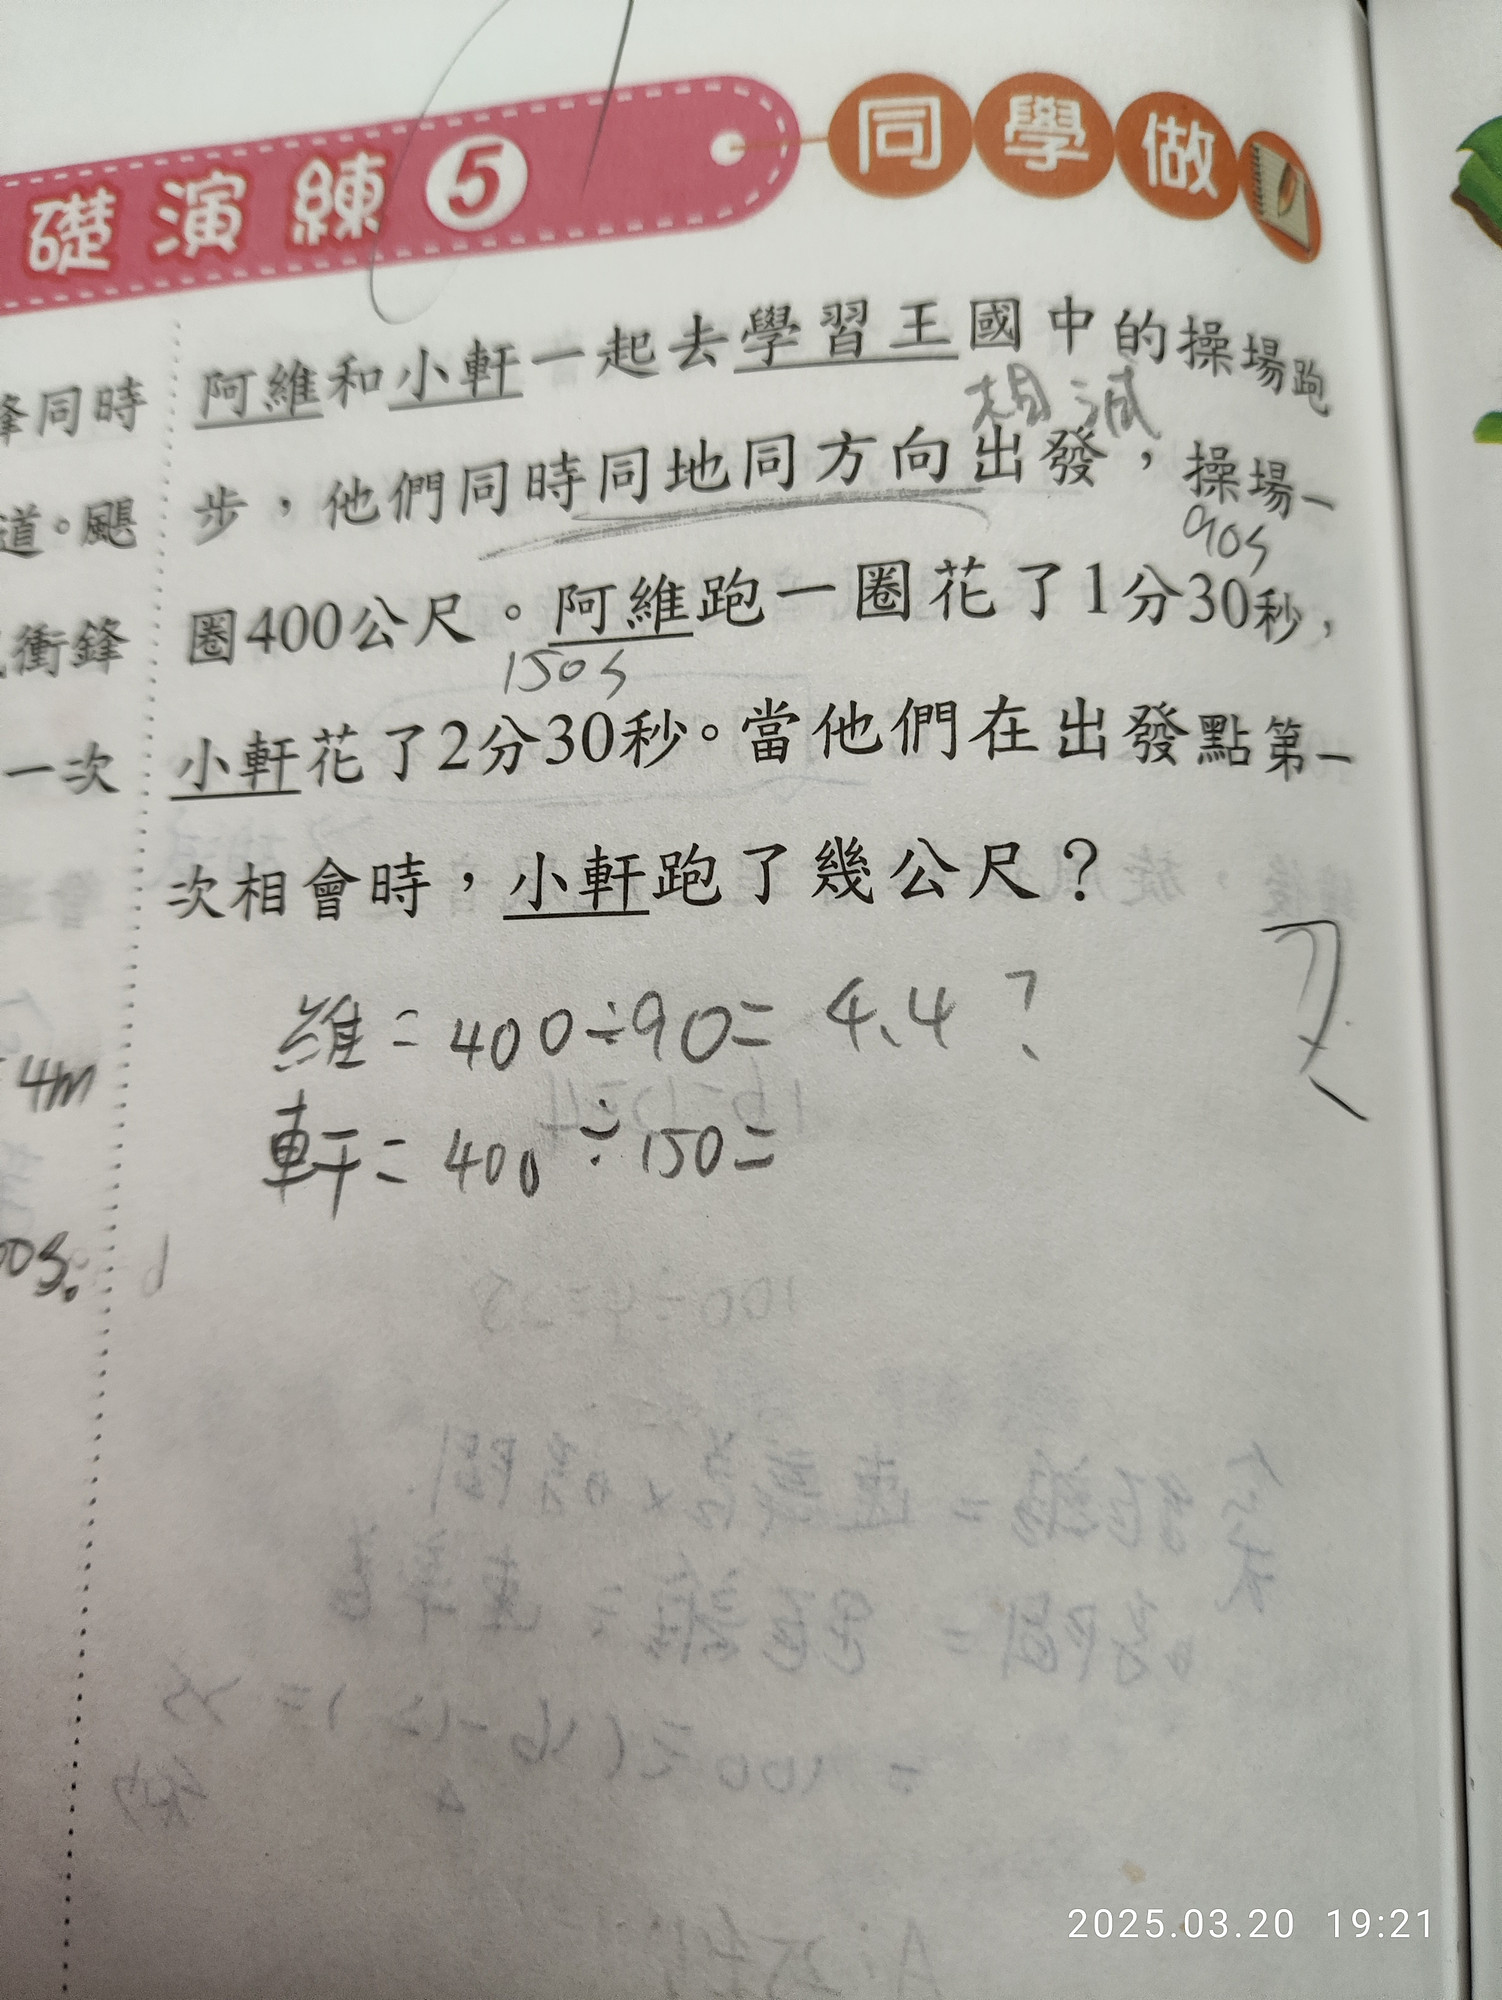 礎演練5 同學做
阿維和小軒一起去學習王國中的操場跑
相減
步，他們同時同地同方向出發，操場一
90s
圈400公尺。阿維跑一圈花了1分30秒，
150s
小軒花了2分30秒。當他們在出發點第一
次相會時，小軒跑了幾公尺？
維=400÷90=4.4?
軒=400÷150=
鋒同時
道。颶
衝鋒
一次
4m
00s.
2025.03.20 19:21